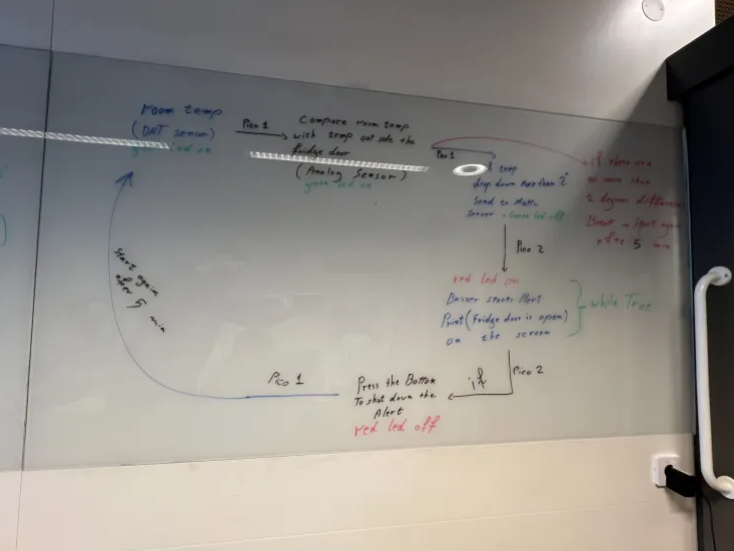 room temp
(DNT sensor)
green led on
Pico 1
Compare room temp
with temp out side the
fridge door
(Analog Sensor)
green led on
Pico 1
if temp
drop down more than 2°
Send to Mattr
server - Green led off
if there are
no more than
2 degree difference
Break → Start again
after 5 min
Pico 2
red led on
Busser starts Alert
Print (Fridge door is open)
on the screen
while True
Pico 2
if
Press the Bottom
To shut down the
Alert
red led off
Pico 1
Start again
after 5 min